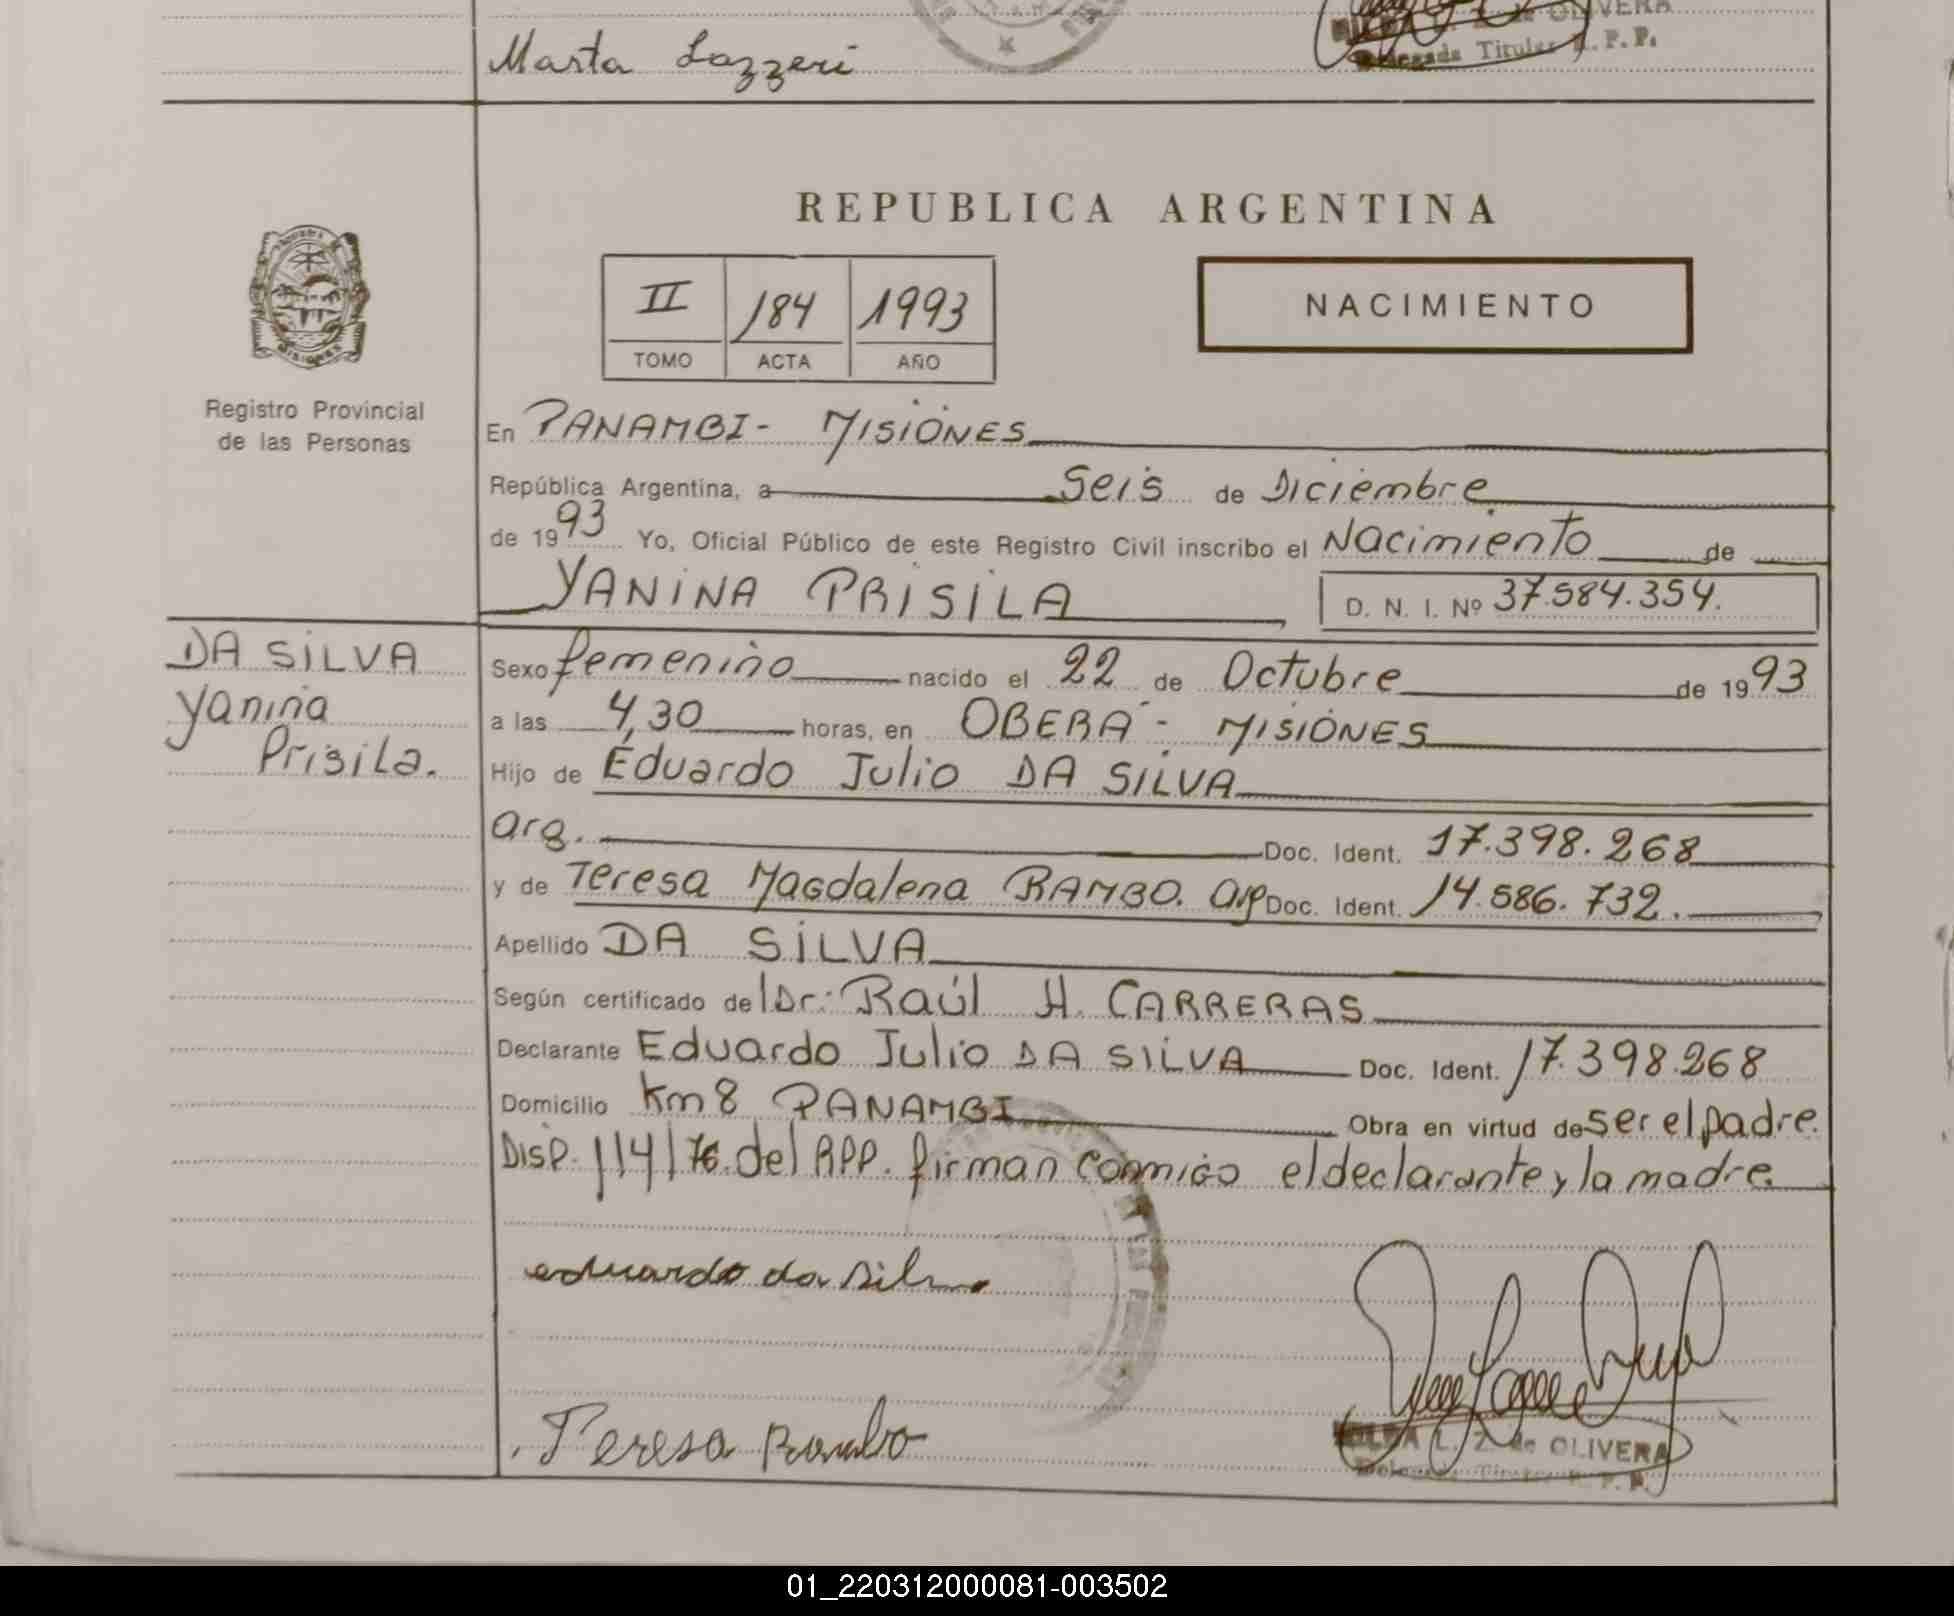 Marta Lazzeri
de OLIVERA
Delegada Titular R. P. P.
REPUBLICA ARGENTINA
II 184 1993
TOMO ACTA AÑO
NACIMIENTO
MISIONES
Registro Provincial
de las Personas
En PANAMBI- MISIONES
República Argentina, a Seis de Diciembre
de 1993 Yo, Oficial Público de este Registro Civil inscribo el Nacimiento de
YANINA PRISILA
D. N. I. Nº 37.584.354.
DA SILVA
Yanina
Prisila.
Sexo femenino nacido el 22 de Octubre de 1993
a las 4,30 horas, en OBERÁ - MISIONES
Hijo de Eduardo Julio DA SILVA
arg. Doc. Ident. 17.398.268
y de Teresa Magdalena RAMBO. arg Doc. Ident. 14.586.732.
Apellido DA SILVA
Según certificado del Dr: Raúl H. CARRERAS
Declarante Eduardo Julio DA SILVA Doc. Ident. 17.398.268
Domicilio Km 8 PANAMBI Obra en virtud de ser el padre.
Disp. 114/76. del RPP. firman conmigo el declarante y la madre.
eduardo da Silva
Teresa Rambo
L. Z. de OLIVERA
Delegada Titular R. P. P.
01_220312000081-003502